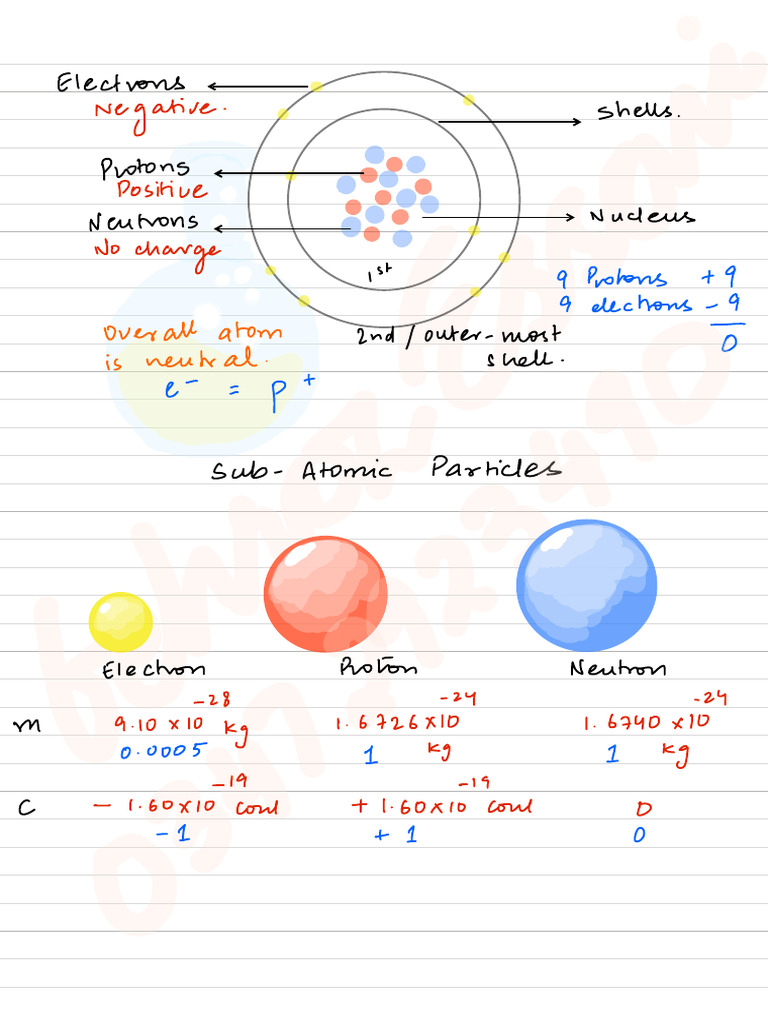 Electrons
Negative.
Shells.
Protons
Positive
Neutrons
No charge
Nucleus
1st
9 Protons + 9
9 electrons - 9
0
Overall atom
is neutral.
e⁻ = p⁺
2nd / outer-most
shell.
Sub-Atomic Particles
Electron Proton Neutron
m 9.10 x 10⁻²⁸ kg 1.6726 x 10⁻²⁴ kg 1.6740 x 10⁻²⁴ kg
0.0005 1 1
C - 1.60 x 10⁻¹⁹ coul + 1.60 x 10⁻¹⁹ coul 0
-1 + 1 0